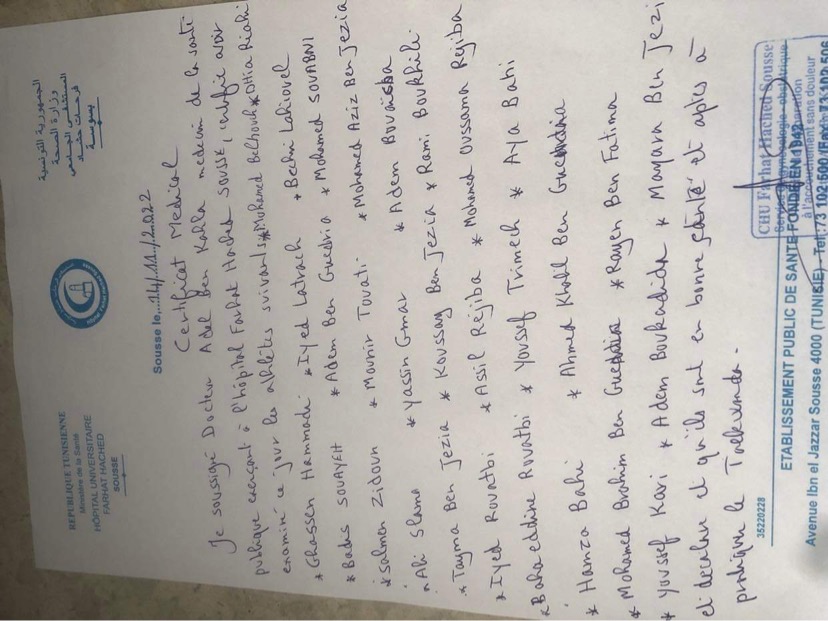 REPUBLIQUE TUNISIENNE
Ministère de la Santé
HÔPITAL UNIVERSITAIRE
FARHAT HACHED
SOUSSE
الجمهورية التونسية
وزارة الصحة
المستشفى الجامعي
فرحات حشاد
بسوسة
Sousse le,...14/11/2022
Certificat Medical
Je soussigné Docteur Adel Ben Kahla medecin de la santé
publique exerçant à l'hôpital Farhat Hached Sousse, certifie avoir
examiné ce jour les athlètes suivants * Mohamed Belhouh * Dhia Riahi
* Ghassen Hammadi * Iyed Latrach * Bechir Lahiouel
* Badis SOUAYEH * Adem Ben Guedria * Mohamed SOUABNI
* Salmen Zidoun * Mounir Touati * Mohamed Aziz Ben Jezia
* Ali Slama * Yassin Gmar * Adem Bouaïsha
* Tayma Ben Jezia * Koussay Ben Jezia * Rami Boukhili
* Iyed Rouatbi * Assil Rejiba * Mohamed Oussama Rejiba
* Baha eddine Rouatbi * Youssef Trimech * Aya Bahi
* Hamza Bahi * Ahmed Khalil Ben Guedria
* Mohamed Brahim Ben Guedria * Rayen Ben Fatima
* Youssef Kari * Adem Boukadida * Mayara Ben Jezi
et declare et qu'ils sont en bonne santé et aptes à
pratiquer le Taekwondo.
CHU Farhat Hached Sousse
Service de gynécologie - obstétrique
à l'accouchement sans douleur
35220228
ETABLISSEMENT PUBLIC DE SANTE FONDE EN 1942
Avenue Ibn el Jazzar Sousse 4000 (TUNISIE) - Tel :73 102 500 /Fax : 73 102 506